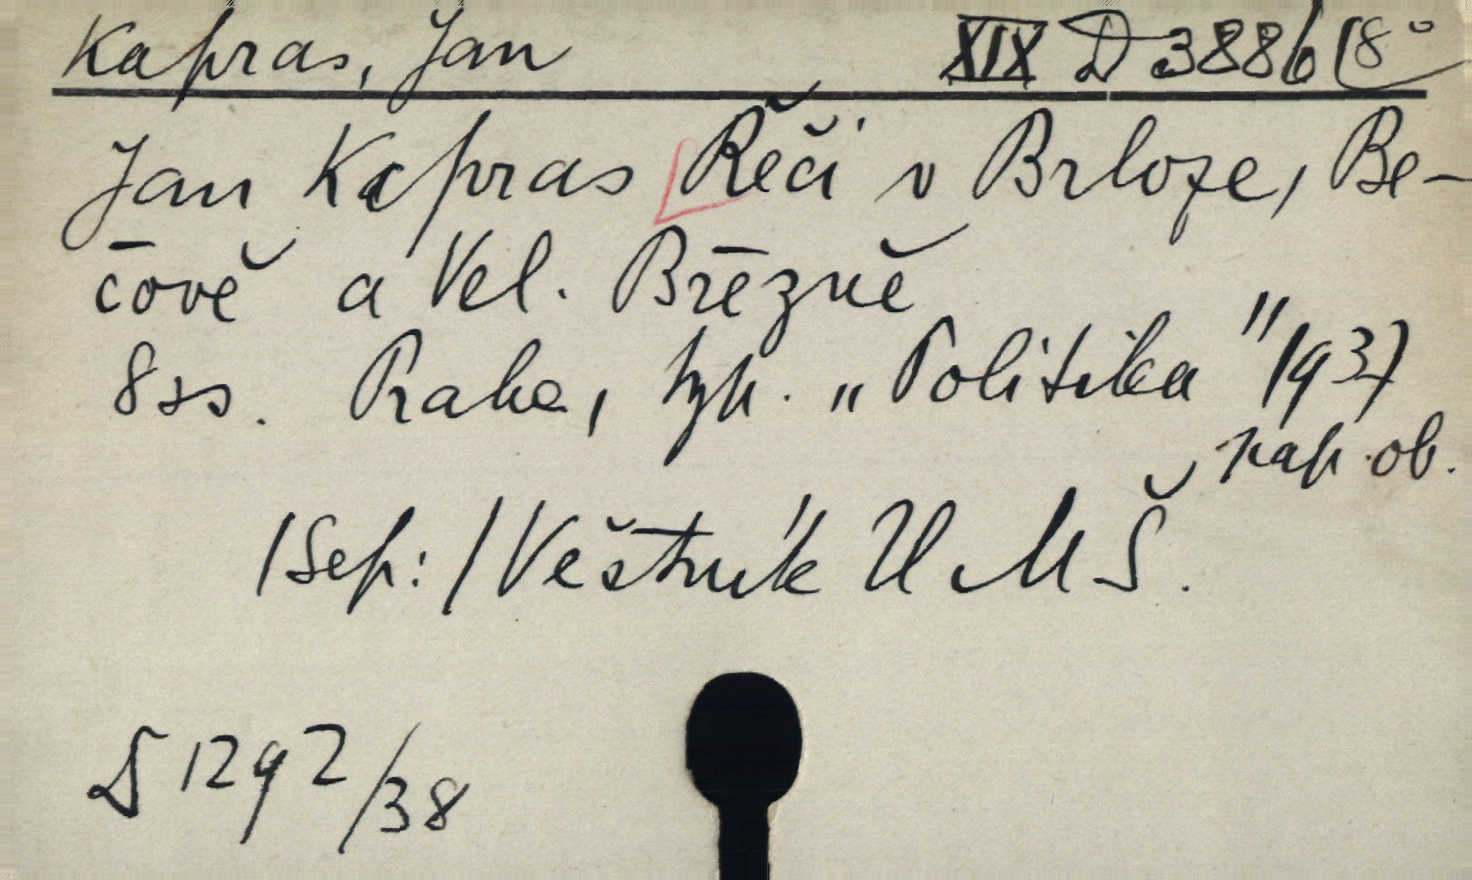 Kapras, Jan XIX D 3886 (8°
Jan Kapras Řeči v Brloze, Be-
čově a Vel. Březně
8 ss. Praha, typ. „Politika" 1937
pap. ob.
/Sep: / Věstník U M Š.
D 1292/38